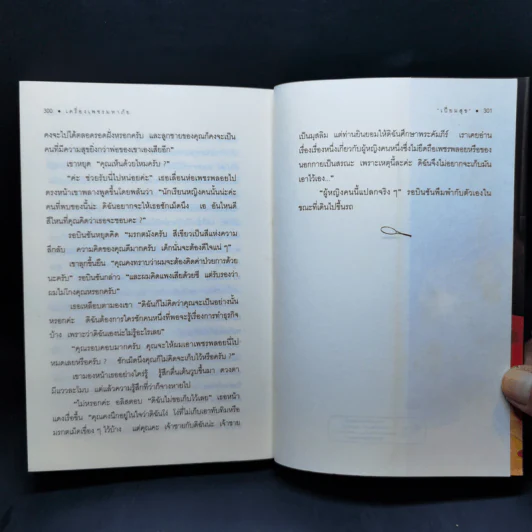 300 • เครื่องเพชรมหาภัย
คงจะไปได้ตลอดรอดฝั่งหรอกครับ และลูกชายของคุณก็คงจะเป็น
คนที่มีความสุขยิ่งกว่าพ่อของเขาเองเสียอีก"
เขาหยุด "คุณเห็นด้วยไหมครับ ?"
"ค่ะ ช่วยรับนี่ไปหน่อยค่ะ" เธอเลื่อนห่อเพชรพลอยไป
ตรงหน้าเขาพลางพูดขึ้นโดยพลันว่า "นักเรียนหญิงคนนั้นน่ะค่ะ
คนที่พบของนี้น่ะ ดิฉันอยากจะให้เธอซักเม็ดนึง เอ อันไหนดี
สีไหนที่คุณคิดว่าเธอจะชอบคะ ?"
รอบินซันหยุดคิด "มรกตมังครับ สีเขียวเป็นสีแห่งความ
ลึกลับ ความคิดของคุณดีมากครับ เด็กนั่นจะต้องดีใจแน่ ๆ"
เขาลุกขึ้นยืน "คุณคงทราบว่าผมจะต้องคิดค่าป่วยการด้วย
นะครับ" รอบินซันกล่าว "และผมคิดแพงเสียด้วยซี แต่รับรองว่า
ผมไม่โกงคุณหรอกครับ"
เธอเหลือบตามองเขา "ดิฉันก็ไม่คิดว่าคุณจะเป็นอย่างนั้น
หรอกค่ะ ดิฉันต้องการใครซักคนหนึ่งที่พอจะรู้เรื่องการทำธุรกิจ
บ้าง เพราะว่าดิฉันเองน่ะไม่รู้อะไรเลย"
"คุณรอบคอบมากครับ คุณจะให้ผมเอาเพชรพลอยนี่ไป
หมดเลยหรือครับ ? ซักเม็ดนึงคุณก็ไม่คิดจะเก็บไว้หรือครับ ?"
เขามองหน้าเธออย่างใคร่รู้ รู้สึกตื่นเต้นวูบขึ้นมา ดวงตา
มีแววละโมบ แต่แล้วความรู้สึกที่ว่าก็จางหายไป
"ไม่หรอกค่ะ อลิสตอบ "ดิฉันไม่ขอเก็บไว้เลย" เธอหน้า
แดงเรื่อขึ้น "คุณคงนึกอยู่ในใจว่าดิฉันโง่ โง่ที่ไม่เก็บเอาทับทิมหรือ
มรกตเม็ดเขื่อง ๆ ไว้บ้าง แต่คุณคะ เจ้าชายกับดิฉันน่ะ เจ้าชาย
'เปี่ยมสุข' • 301
เป็นมุสลิม แต่ท่านยินยอมให้ดิฉันศึกษาพระคัมภีร์ เราเคยอ่าน
เรื่องเรื่องหนึ่งเกี่ยวกับผู้หญิงคนหนึ่งซึ่งไม่ยึดถือเพชรพลอยหรือของ
นอกกายเป็นสรณะ เพราะเหตุนี้ละค่ะ ดิฉันจึงไม่อยากจะเก็บมัน
เอาไว้เอง..."
"ผู้หญิงคนนี้แปลกจริง ๆ" รอบินซันพึมพำกับตัวเองใน
ขณะที่เดินไปขึ้นรถ